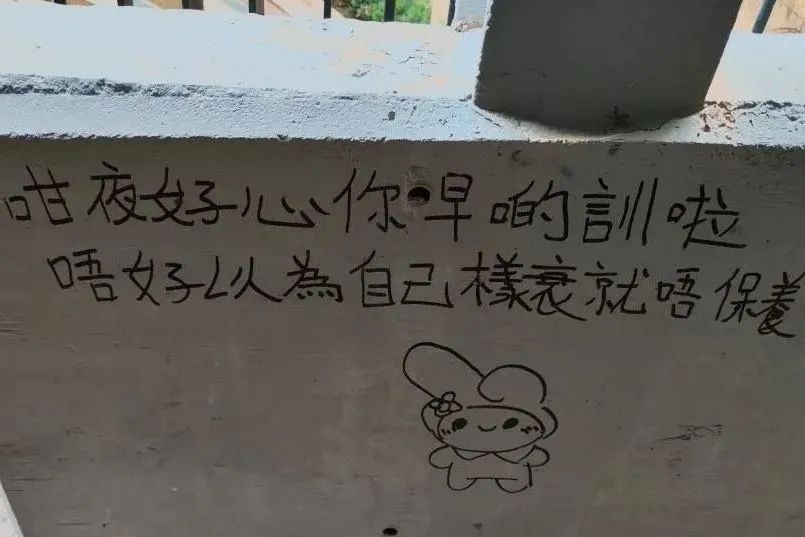 咁夜好心你早啲訓啦
唔好以為自己樣衰就唔保養